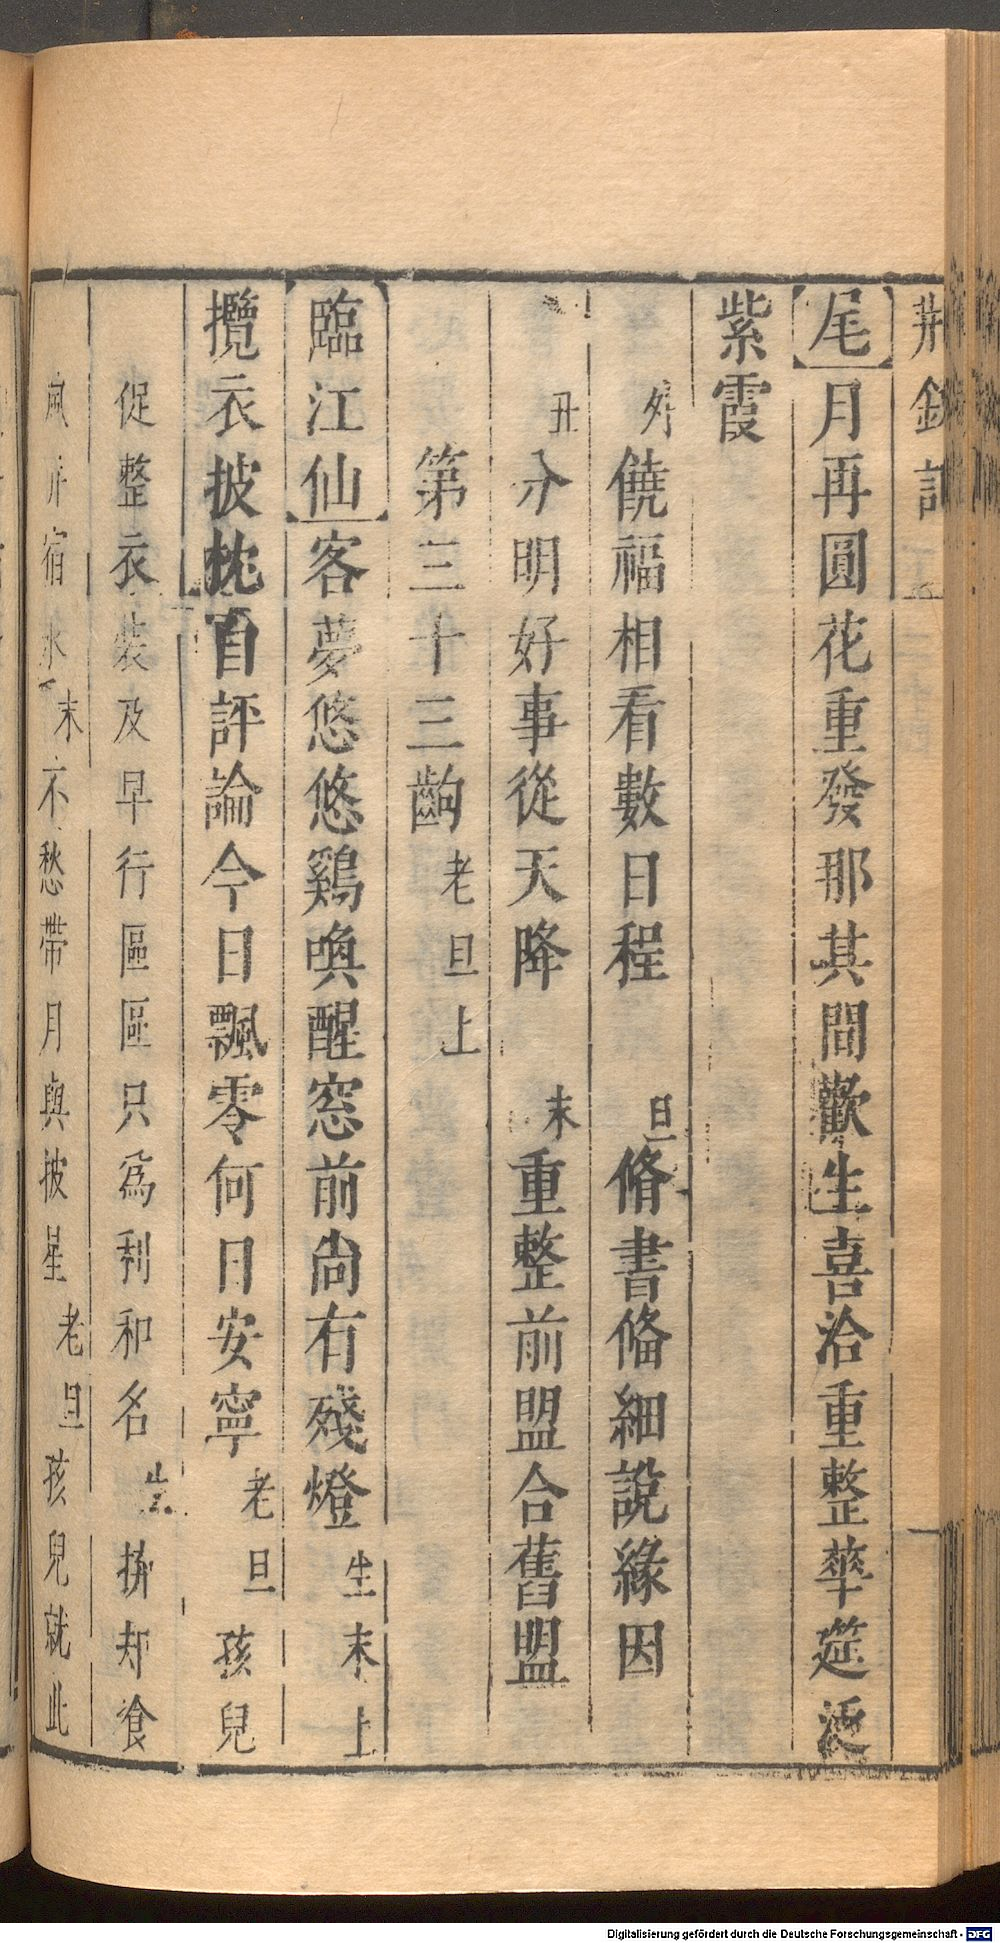 荊釵記
尾月再圓花重發那其間歡生喜洽重整華筵泛
紫霞
外饒福相看數日程　旦脩書俻細說緣因
丑分明好事從天降　末重整前盟合舊盟
第三十三齣老旦上
臨江仙客夢悠悠鷄喚醒窓前尚有殘燈生末上
攬衣披枕自評論今日飄零何日安寧老旦孩兒
促整衣裝及早行區區只為利和名生拚却飡
風并宿水末不愁帶月與披星老旦孩兒就此
Digitalisierung gefördert durch die Deutsche Forschungsgemeinschaft - DFG